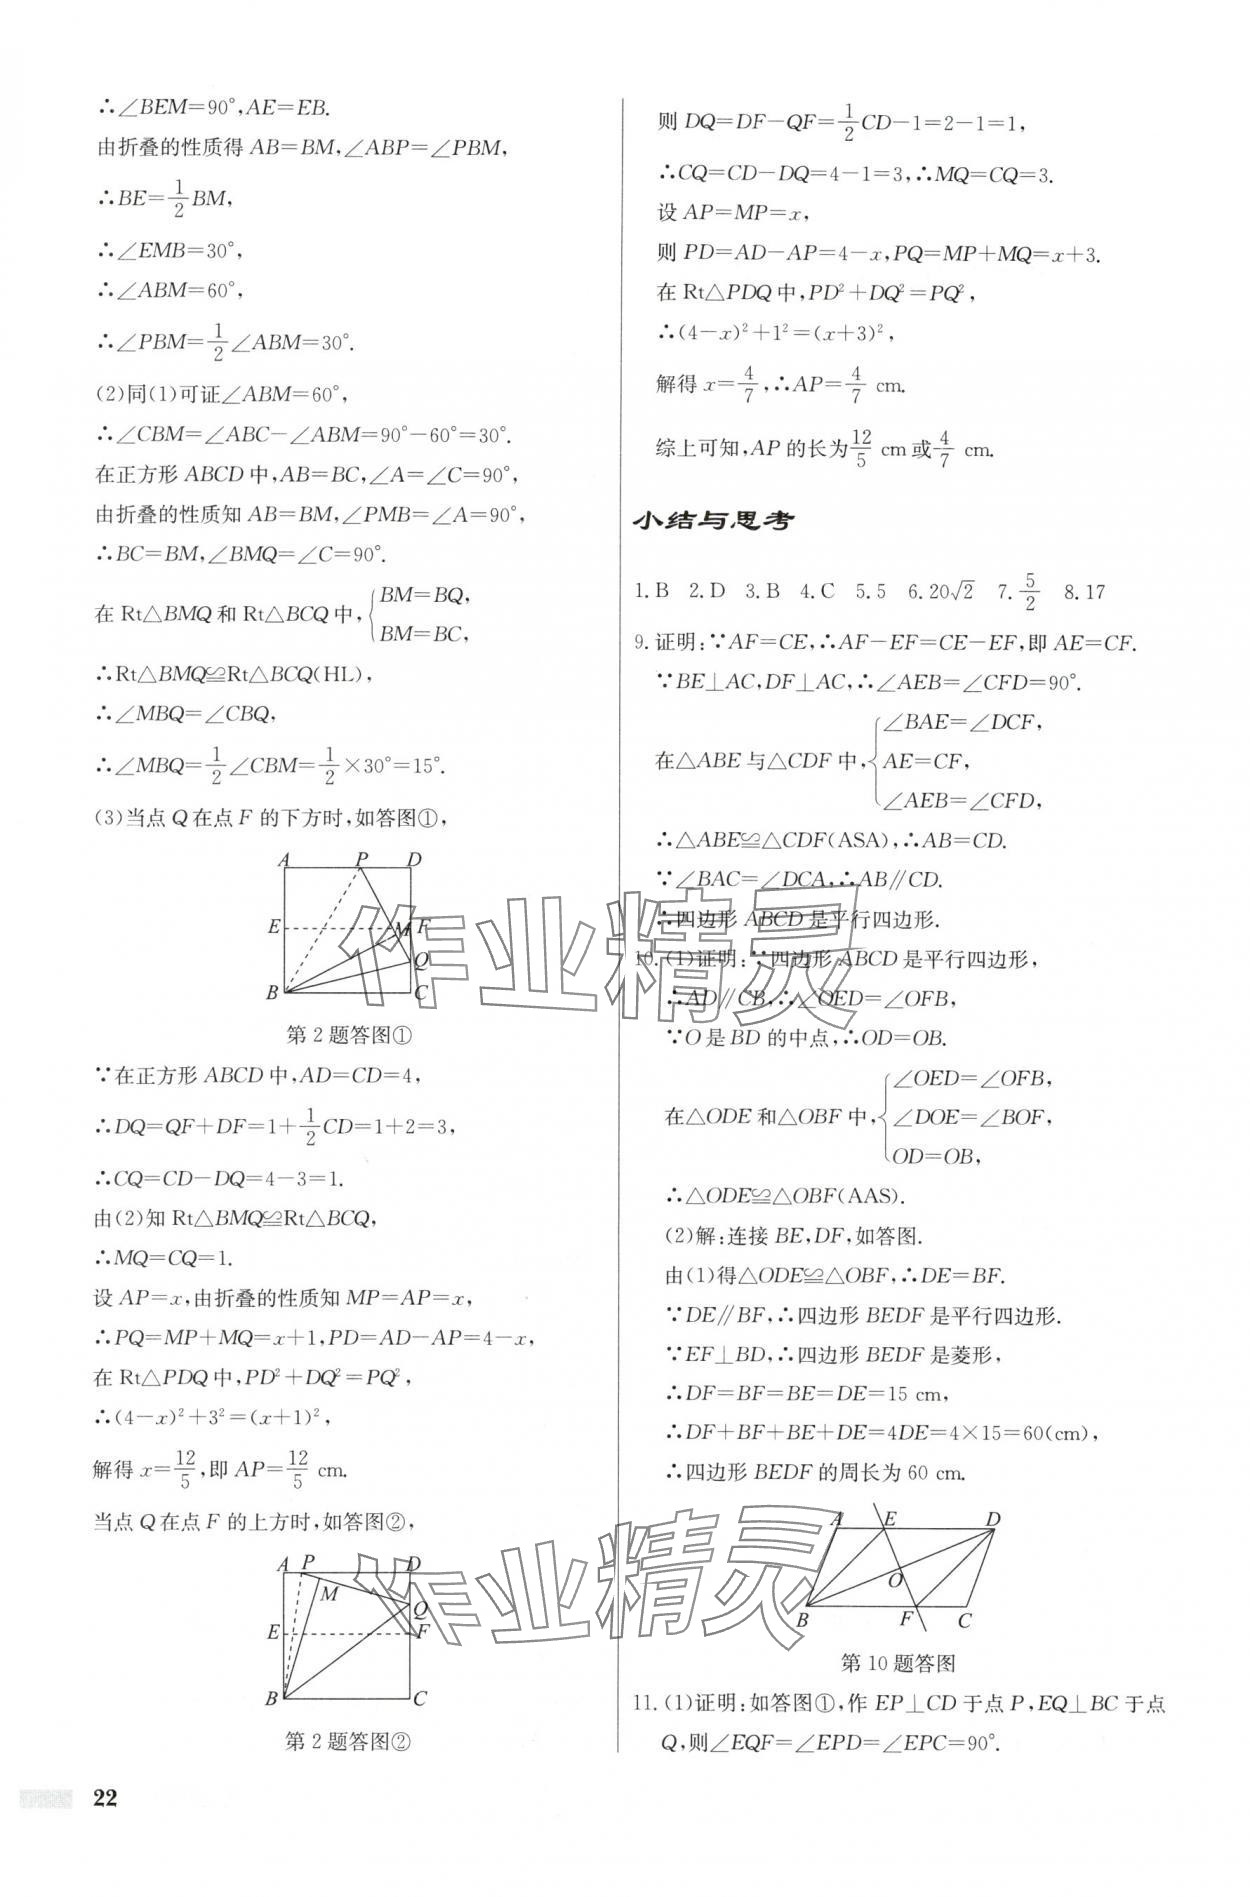 ∴∠BEM=90°,AE=EB.
由折叠的性质得 AB=BM,∠ABP=∠PBM,
∴BE=1/2BM,
∴∠EMB=30°,
∴∠ABM=60°,
∴∠PBM=1/2∠ABM=30°.
(2)同(1)可证∠ABM=60°,
∴∠CBM=∠ABC-∠ABM=90°-60°=30°.
在正方形 ABCD 中,AB=BC,∠A=∠C=90°,
由折叠的性质知 AB=BM,∠PMB=∠A=90°,
∴BC=BM,∠BMQ=∠C=90°.
在 Rt△BMQ 和 Rt△BCQ 中,{BM=BQ,
BM=BC,
∴Rt△BMQ≌Rt△BCQ(HL),
∴∠MBQ=∠CBQ,
∴∠MBQ=1/2∠CBM=1/2×30°=15°.
(3)当点 Q 在点 F 的下方时,如答图①,
A P D
E M F
Q
B C
第 2 题答图①
∵在正方形 ABCD 中,AD=CD=4,
∴DQ=QF+DF=1+1/2CD=1+2=3,
∴CQ=CD-DQ=4-3=1.
由(2)知 Rt△BMQ≌Rt△BCQ,
∴MQ=CQ=1.
设 AP=x,由折叠的性质知 MP=AP=x,
∴PQ=MP+MQ=x+1,PD=AD-AP=4-x,
在 Rt△PDQ 中,PD²+DQ²=PQ²,
∴(4-x)²+3²=(x+1)²,
解得 x=12/5,即 AP=12/5 cm.
当点 Q 在点 F 的上方时,如答图②,
A P D
M
Q
E F
B C
第 2 题答图②
22
则 DQ=DF-QF=1/2CD-1=2-1=1,
∴CQ=CD-DQ=4-1=3,∴MQ=CQ=3.
设 AP=MP=x,
则 PD=AD-AP=4-x,PQ=MP+MQ=x+3.
在 Rt△PDQ 中,PD²+DQ²=PQ²,
∴(4-x)²+1²=(x+3)²,
解得 x=4/7,∴AP=4/7 cm.
综上可知,AP 的长为12/5 cm或4/7 cm.
小结与思考
1.B 2.D 3.B 4.C 5.5 6.20√2 7.5/2 8.17
9.证明:∵AF=CE,∴AF-EF=CE-EF,即 AE=CF.
∵BE⊥AC,DF⊥AC,∴∠AEB=∠CFD=90°.
∠BAE=∠DCF,
在△ABE 与△CDF 中,{AE=CF,
∠AEB=∠CFD,
∴△ABE≌△CDF(ASA),∴AB=CD.
∵∠BAC=∠DCA,∴AB∥CD.
∴四边形 ABCD 是平行四边形.
10.(1)证明:∵四边形 ABCD 是平行四边形,
∴AD∥CB,∴∠OED=∠OFB,
∵O 是 BD 的中点,∴OD=OB.
∠OED=∠OFB,
在△ODE 和△OBF 中,{∠DOE=∠BOF,
OD=OB,
∴△ODE≌△OBF(AAS).
(2)解:连接 BE,DF,如答图.
由(1)得△ODE≌△OBF,∴DE=BF.
∵DE∥BF,∴四边形 BEDF 是平行四边形.
∵EF⊥BD,∴四边形 BEDF 是菱形,
∴DF=BF=BE=DE=15 cm,
∴DF+BF+BE+DE=4DE=4×15=60(cm),
∴四边形 BEDF 的周长为 60 cm.
A E D
O
B F C
第 10 题答图
11.(1)证明:如答图①,作 EP⊥CD 于点 P,EQ⊥BC 于点
Q,则∠EQF=∠EPD=∠EPC=90°.
作业精灵
作业精灵